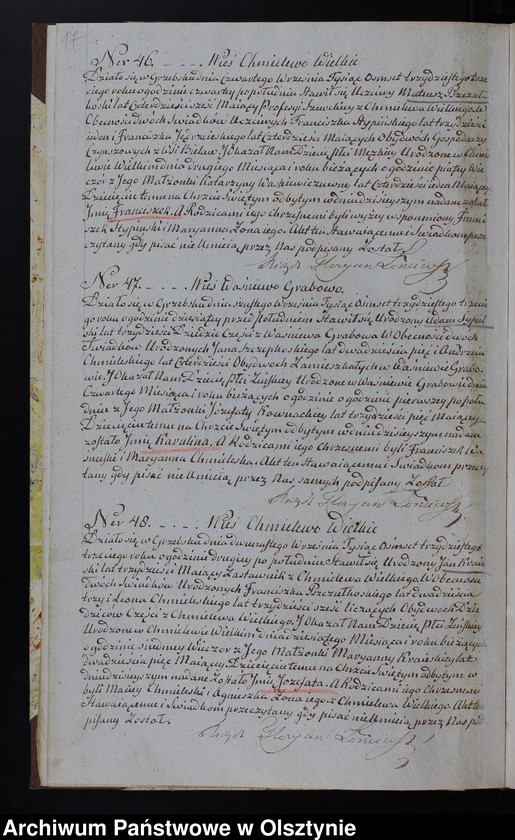 17
Ner 46. _ . _ . _ Wieś Chmielewo Wielkie
Działo się w Grzebsku dnia czwartego Września Tysiąc Osmset trzydziestego trze
ciego roku o godzinie czwartey po południu Stawił się Uczciwy Mateusz
lat Czterdzieści sześć Maiący Profesyi Szewckiey z Chmielewa Wielkiego W
Obecności dwóch Swiadków Uczciwych Franciszka Stypińskiego lat trzydzieści
ieden i Franciszka lat Czterdzieści Maiących Obydwóch Gospodarzy
Czynszowych z Wsi I Okazał Nam Dziecię Płci Męzkiey Urodzone w Chmie
lewie Wielkim dnia drugiego Miesiąca i roku bieżących o godzinie piątey Wie
czór z Jego Małżonki Katarzyny lat Czterdzieści ieden Maiącey
Dziecięciu temu na Chrzcie Swiętym odbytym w dniu dzisieyszym nadane zostało
Jmię Franciszek. A Rodzicami iego Chrzesnemi byli wyżey wspomniony Franci
szek Stypinski i Maryanna Zona iego. Akt ten Stawaiącemu i Swiadkom prze
czytany gdy pisać nie Umieią przez Nas podpisany Został.
Xiądz Floryan
Ner 47. _ . _ . _ Wieś Waśniewo Grabowo.
Działo się w Grzebsku dnia szustego Września Tysiąc Osmset trzydziestego trzecie
go roku o godzinie dziesiątey przed południem Stawił się Urodzony Adam
lat trzydzieści Dziedzic Części z Waśniewa Grabowa W Obecności dwóch
Swiadków Urodzonych Jana Szczepkoskiego lat dwadzieścia pięć i Andrzeia
Chmielewskiego lat Czterdzieści Obydwóch Zamieszkałych w Waśniewie Grabo
wie. I Okazał Nam Dziecię Płci Zeńskiey Urodzone w Waśniewie Grabowie dnia
Czwartego Miesiąca i roku bieżących o godzinie o godzinie pierwszey po połu
dniu z Jego Małżonki Józefaty Kownackiey lat trzydzieści pięć Maiącey
Dziecięciu temu na Chrzcie Swiętym odbytym w dniu dzisieyszym nadane
zostało Jmię Karulina. A Rodzicami iego Chrzesnemi byli Franciszek
i Maryanna Chmieleska. Akt ten Stawaiącemu i Swiadkom przeczy
tany gdy pisać nie Umieią przez Nas samych podpisany Został
Xiądz Floryan
Ner 48. _ . _ . _ Wieś Chmielewo Wielkie
Działo się w Grzebsku dnia dwunastego Września Tysiąc Osmset trzydziestego
trzeciego roku o godzinie drugiey po południu Stawił się Urodzony Jan
lat trzydzieści Maiący Zastawnik z Chmielewa Wielkiego W Obecności
dwóch Swiadków Urodzonych Franciszka lat dwadzieścia
trzy i Leona Chmielskiego lat trzydzieści sześć liczących Obydwóch Dzie
dziców Części z Chmielewa Wielkiego. I Okazał Nam Dziecię Płci Zeńskiey
Urodzone w Chmielewie Wielkim dnia dziesiątego Miesiąca i roku bieżących
o godzinie siudmey Wieczor z Jego Małżonki Maryanny lat
dwadzieścia pięć Maiącey. Dziecięciu temu na Chrzcie Swiętym odbytym w
dniu dzisieyszym nadane Zostało Jmię Jozefata. A Rodzicami iego Chrzesnemi
byli Maciey Chmieleski i Agnieszka Zona iego z Chmielewa Wielkiego Akt ten
Stawaiącemu i Swiadkom przeczytany gdy pisać nie Umieią przez Nas pod
pisany Został.
Xiądz Floryan
Archiwum Państwowe w Olsztynie